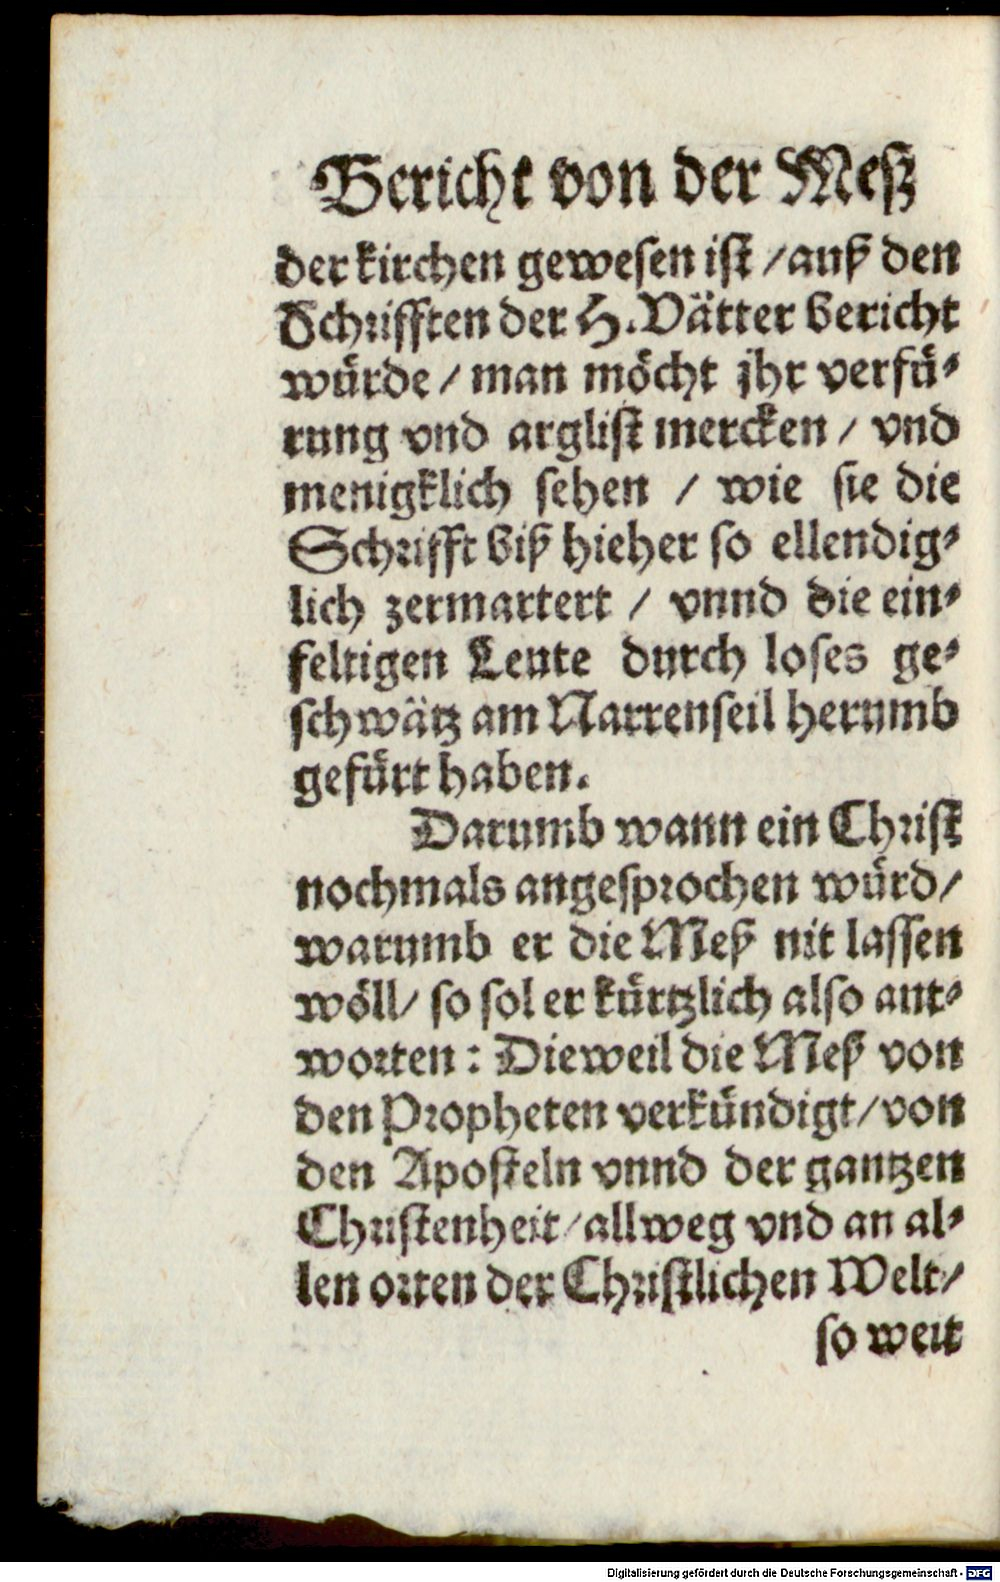 Bericht von der Meß
der kirchen gewesen ist / auß den
Schrifften der H. Vätter bericht
würde / man möcht jhr verfü-
rung vnd arglist mercken / vnd
menigklich sehen / wie sie die
Schrifft biß hieher so ellendig-
lich zermartert / vnnd die ein-
feltigen Leute durch loses ge-
schwätz am Narrenseil herumb
gefürt haben.
Darumb wann ein Christ
nochmals angesprochen würd /
warumb er die Meß nit lassen
wöll / so sol er kürtzlich also ant-
worten : Dieweil die Meß von
den Propheten verkündigt / von
den Aposteln vnnd der gantzen
Christenheit / allweg vnd an al-
len orten der Christlichen Welt /
so weit
Digitalisierung gefördert durch die Deutsche Forschungsgemeinschaft - DFG